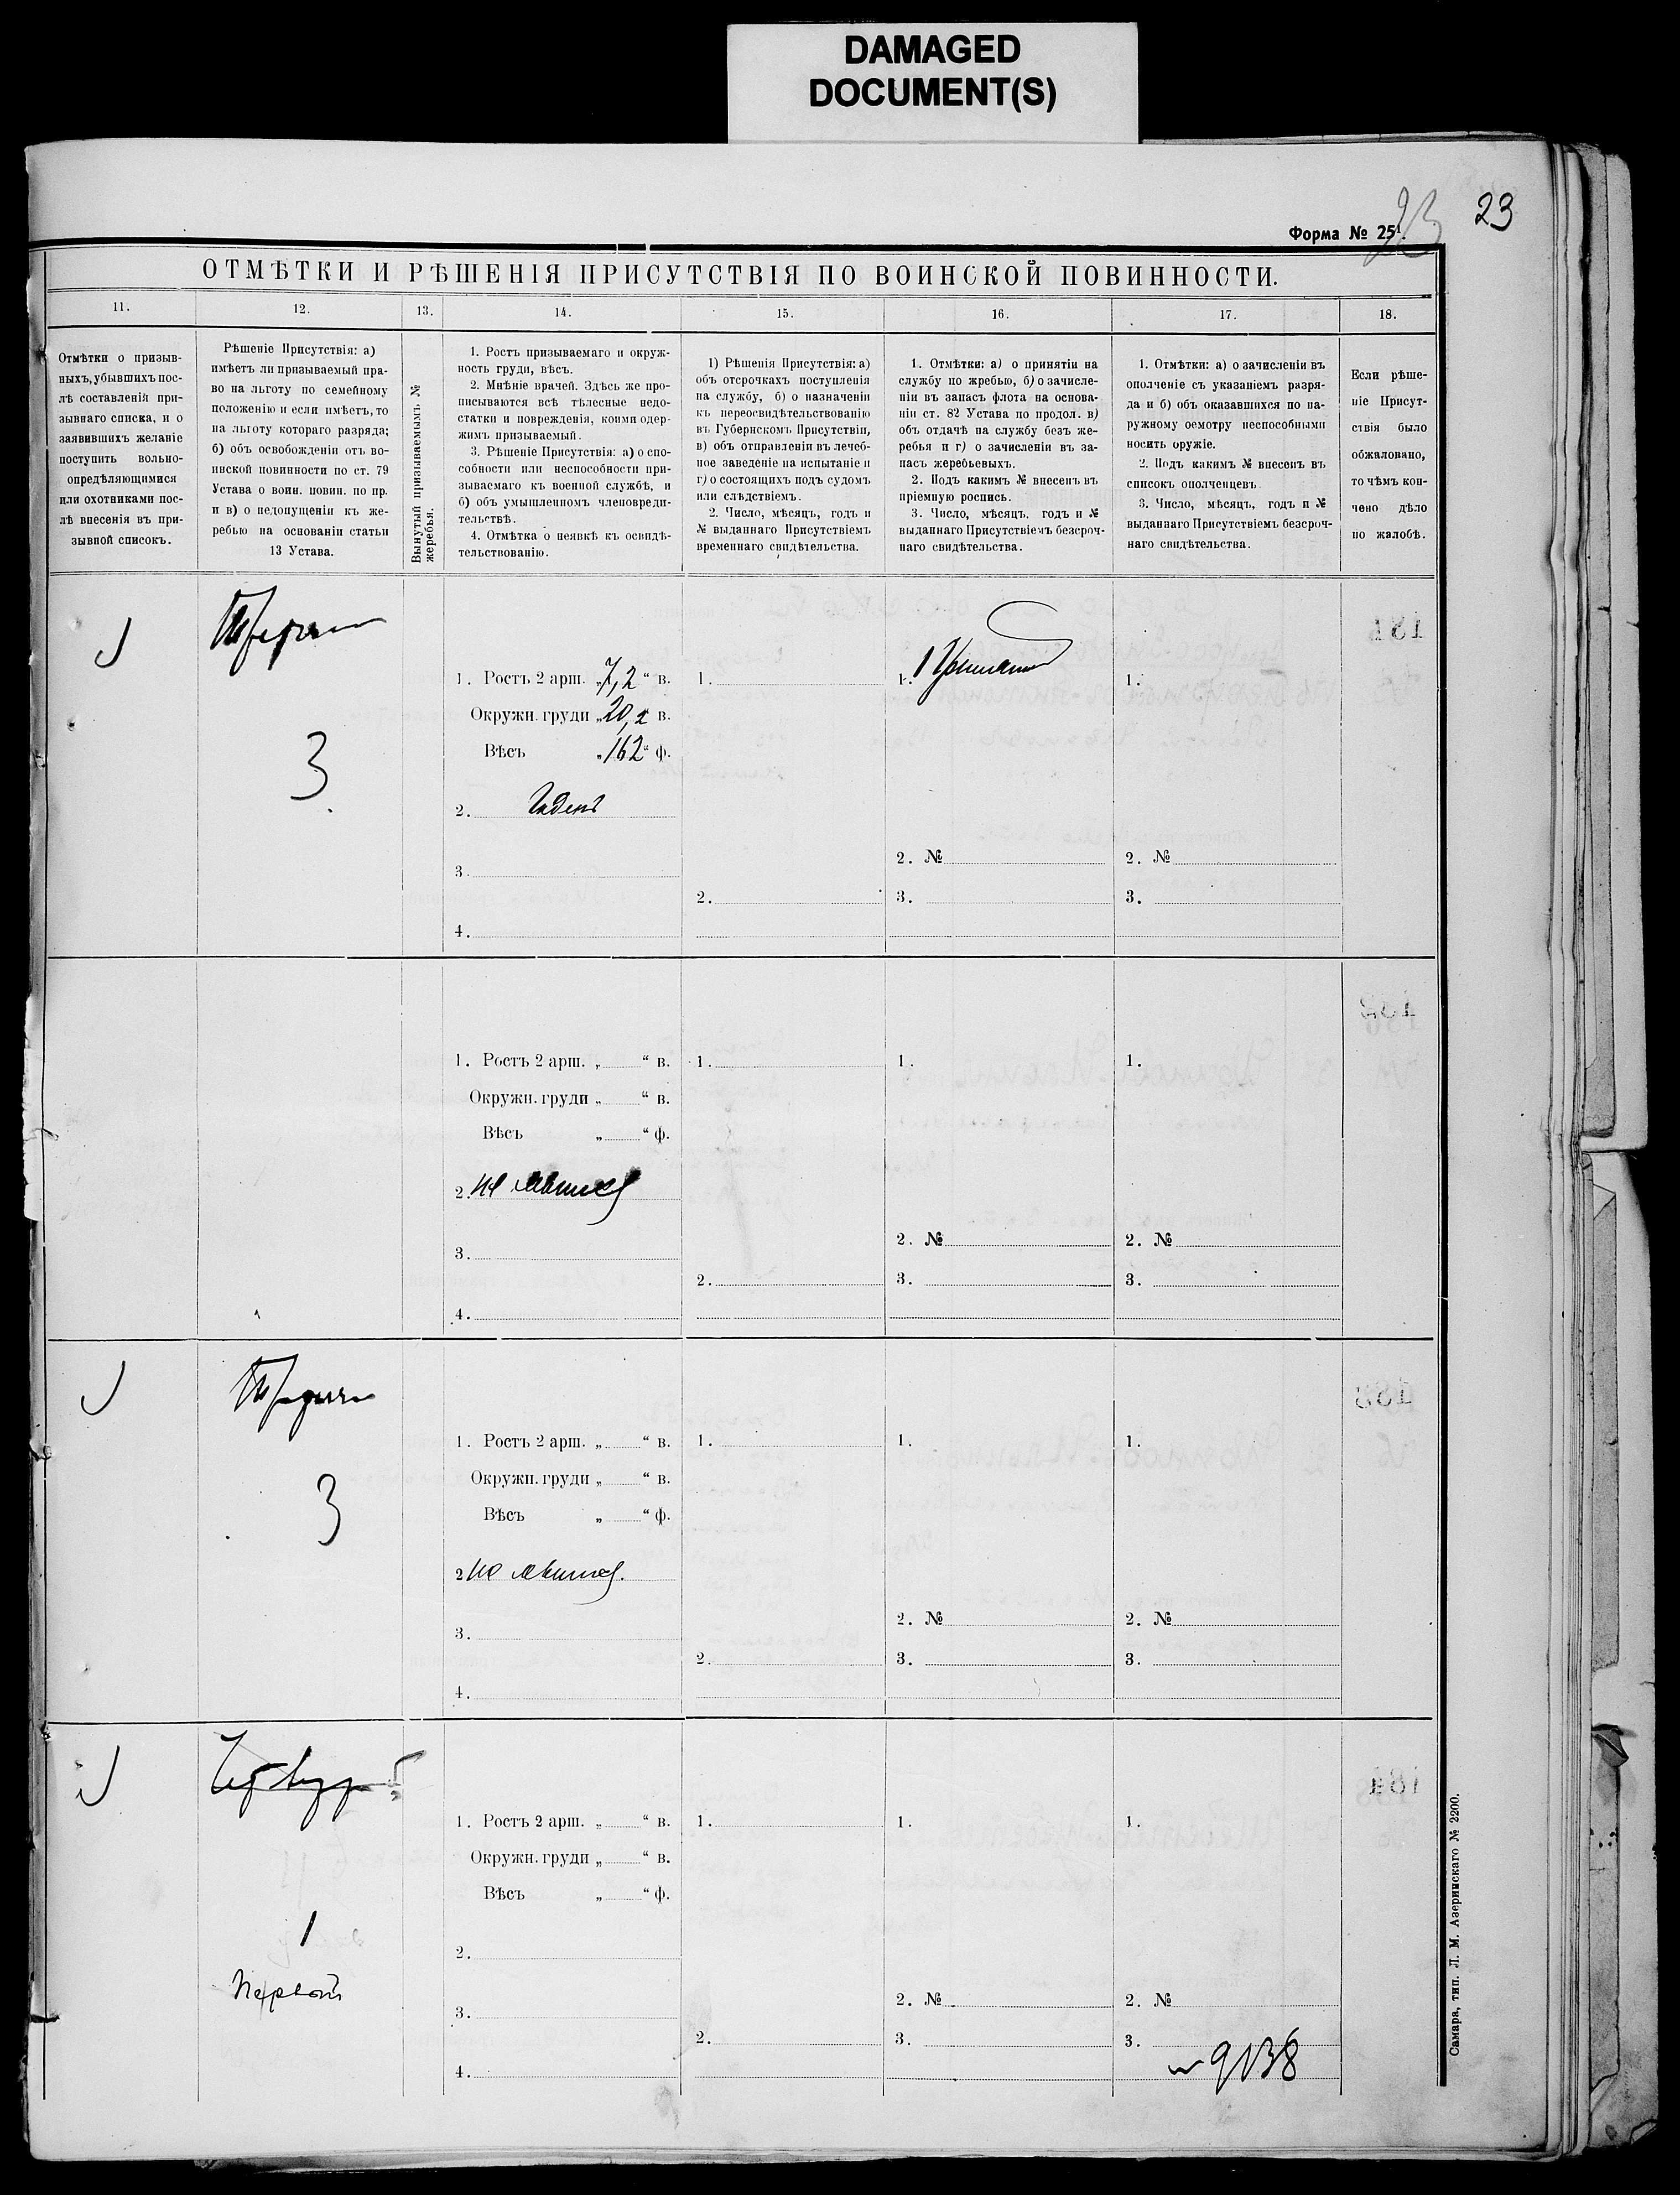 DAMAGED
DOCUMENT(S)
23
23
Форма № 25¹.
ОТМѢТКИ И РѢШЕНІЯ ПРИСУТСТВІЯ ПО ВОИНСКОЙ ПОВИННОСТИ.
11.
12.
13.
14.
15.
16.
17.
18.
Отмѣтки о призыв-
ныхъ, убывшихъ пос-
лѣ составленій при-
зывнаго списка, и о
заявившихъ желаніе
поступить вольно-
опредѣляющимися
или охотниками пос-
лѣ внесенія въ при-
зывной списокъ.
Рѣшеніе Присутствія: а)
имѣетъ ли призываемый пра-
во на льготу по семейному
положенію и если имѣетъ, то
на льготу котораго разряда;
б) объ освобожденіи отъ во-
инской повинности по ст. 79
Устава о воин. повин. по пр.
и в) о недопущеніи къ же-
ребью на основаніи статьи
13 Устава.
Вынутый призываемымъ №
жеребья.
1. Ростъ призываемаго и окруж-
ность груди, вѣсъ.
2. Мнѣніе врачей. Здѣсь же про-
писываются всѣ тѣлесные недо-
статки и поврежденія, коими одер-
жимъ призываемый.
3. Рѣшеніе Присутствія: а) о спо-
собности или неспособности при-
зываемаго къ военной службѣ, и
б) объ умышленномъ членовреди-
тельствѣ.
4. Отмѣтка о неявкѣ къ освидѣ-
тельствованію.
1) Рѣшенія Присутствія: а)
объ отсрочкахъ поступленія
на службу, б) о назначеніи
къ переосвидѣтельствованію
въ Губернскомъ Присутствіи,
в) объ отправленіи въ лечеб-
ное заведеніе на испытаніе и
г) о состоящихъ подъ судомъ
или слѣдствіемъ.
2. Число, мѣсяцъ, годъ и
№ выданнаго Присутствіемъ
временнаго свидѣтельства.
1. Отмѣтки: а) о принятіи на
службу по жребью, б) о зачисле-
ніи въ запасъ флота на основа-
ніи ст. 82 Устава по продол. в)
объ отдачѣ на службу безъ же-
ребья и г) о зачисленіи въ за-
пасъ жеребьевыхъ.
2. Подъ какимъ № внесенъ въ
пріемную роспись.
3. Число, мѣсяцъ, годъ и №
выданнаго Присутствіемъ безсроч-
наго свидѣтельства.
1. Отмѣтки: а) о зачисленіи въ
ополченіе съ указаніемъ разря-
да и б) объ оказавшихся по на-
ружному осмотру неспособными
носить оружіе.
2. Подъ какимъ № внесенъ въ
списокъ ополченцевъ.
3. Число, мѣсяцъ, годъ и №
выданнаго Присутствіемъ безсроч-
наго свидѣтельства.
Если рѣше-
ніе Присут-
ствія было
обжаловано,
то чѣмъ кон-
чено дѣло
по жалобѣ.
3
1. Ростъ 2 арш. „7,2“ в.
Окружн. груди „20,2 в.
Вѣсъ „162“ ф.
2. Годенъ
3.
4.
1.
2.
1.
2. №
3.
1.
2. №
3.
1. Ростъ 2 арш. „ “ в.
Окружн. груди „ “ в.
Вѣсъ „ “ ф.
2. не явился
3.
4.
1.
2.
1.
2. №
3.
1.
2. №
3.
3
1. Ростъ 2 арш. „ “ в.
Окружн. груди „ “ в.
Вѣсъ „ “ ф.
2 не явился.
3.
4.
1.
2.
1.
2. №
3.
1.
2. №
3.
1
Первой
1. Ростъ 2 арш. „ “ в.
Окружн. груди „ “ в.
Вѣсъ „ “ ф.
2.
3.
4.
1.
2.
1.
2. №
3.
1.
2. №
3.
9138
Самара, тип. Л. М. Азеринскаго № 2200.